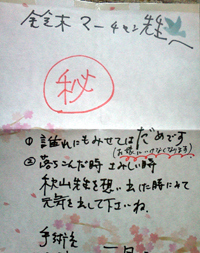 鈴木 マーチャン先生へ
秘
① 誰れにもみせては だめです
(お嫁にいけなくなります)
② 落ちこんだ時 さみしい時
秋山先生を想い出した時にみて
元気を出して下さいね。
手術を